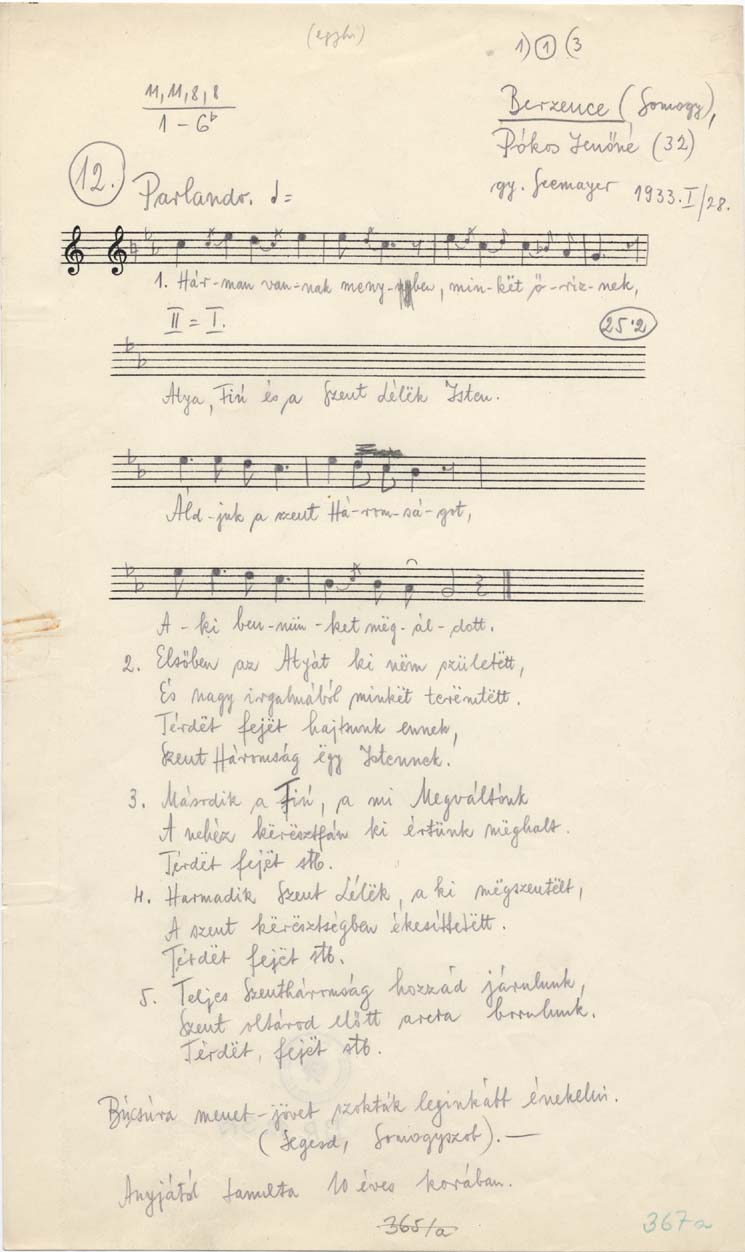 (egyhi)
1) 1 (3
11, 11, 8, 8
1 – 6♭
Berzence (Somogy),
Pókos Jenőné (32)
gy. Seemayer 1933. I/28.
12.
Parlando.
1. Hár-man van-nak meny-nyben, min-kët ő-riz-nek,
II = I.
25·2
Atya, Fiú és a Szent Lélëk Isten.
Áld-juk a szent Há-rom-sá-got,
A-ki ben-nün-ket mëg-ál-dott.
2. Elsőben az Atyát ki nëm születëtt,
És nagy irgalmából minkët terëmtëtt.
Térdët fejët hajtsunk ennek,
Szent Háromság ëgy Istennek.
3. Második a Fiú, a mi Megváltónk
A nehéz kërësztfán ki értünk mëghalt.
Térdët fejët stb.
4. Harmadik Szent Lélëk, a ki mëgszentëlt,
A szent kërësztségben ékesíttetëtt.
Térdët fejët stb.
5. Teljes Szentháromság hozzád járulunk,
Szent oltárod előtt arcra borulunk.
Térdët, fejët stb.
Búcsúra menet-jövet szokták leginkább énekelni.
(Segesd, Somogyszob). —
Anyjától tanulta 10 éves korában.
365/a
367a